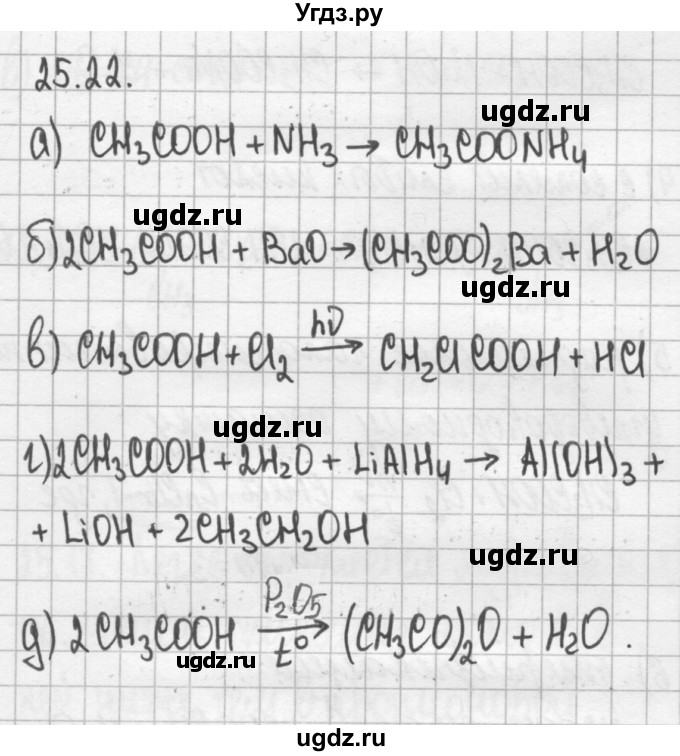 Угдз.ру
25.22.
ugdz.ru
а) CH₃COOH + NH₃ → CH₃COONH₄
ugdz.ru
б) 2CH₃COOH + BaO → (CH₃COO)₂Ba + H₂O
ugdz.ru
hν
в) CH₃COOH + Cl₂ → CH₂ClCOOH + HCl
ugdz.ru
г) 2CH₃COOH + 2H₂O + LiAlH₄ → Al(OH)₃ +
+ LiOH + 2CH₃CH₂OH
ugdz.ru
P₂O₅
д) 2CH₃COOH → (CH₃CO)₂O + H₂O .
t°
ugdz.ru
ugdz.ru